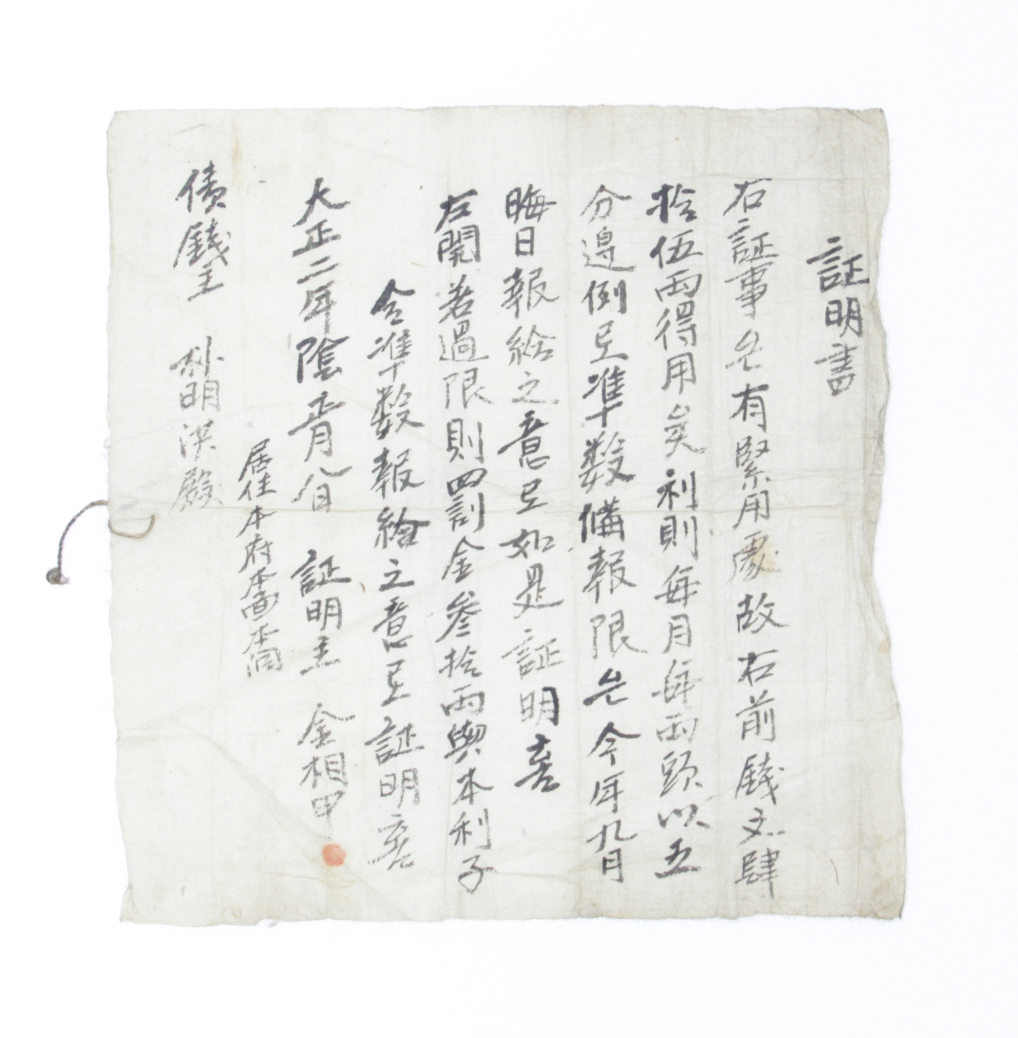 証明書
右証事段有緊用處故右前錢文肆
拾伍両得用矣利則每月每両頭以五
分邊例로準数備報限은今年九月
晦日報給之意로如是証明홈
左開若過限則四罰金參拾両與本利子
合準数報給之意로証明홈
大正二年陰正月八日 証明主 金相甲
居住本府本面本洞
債錢主 朴明洪殿